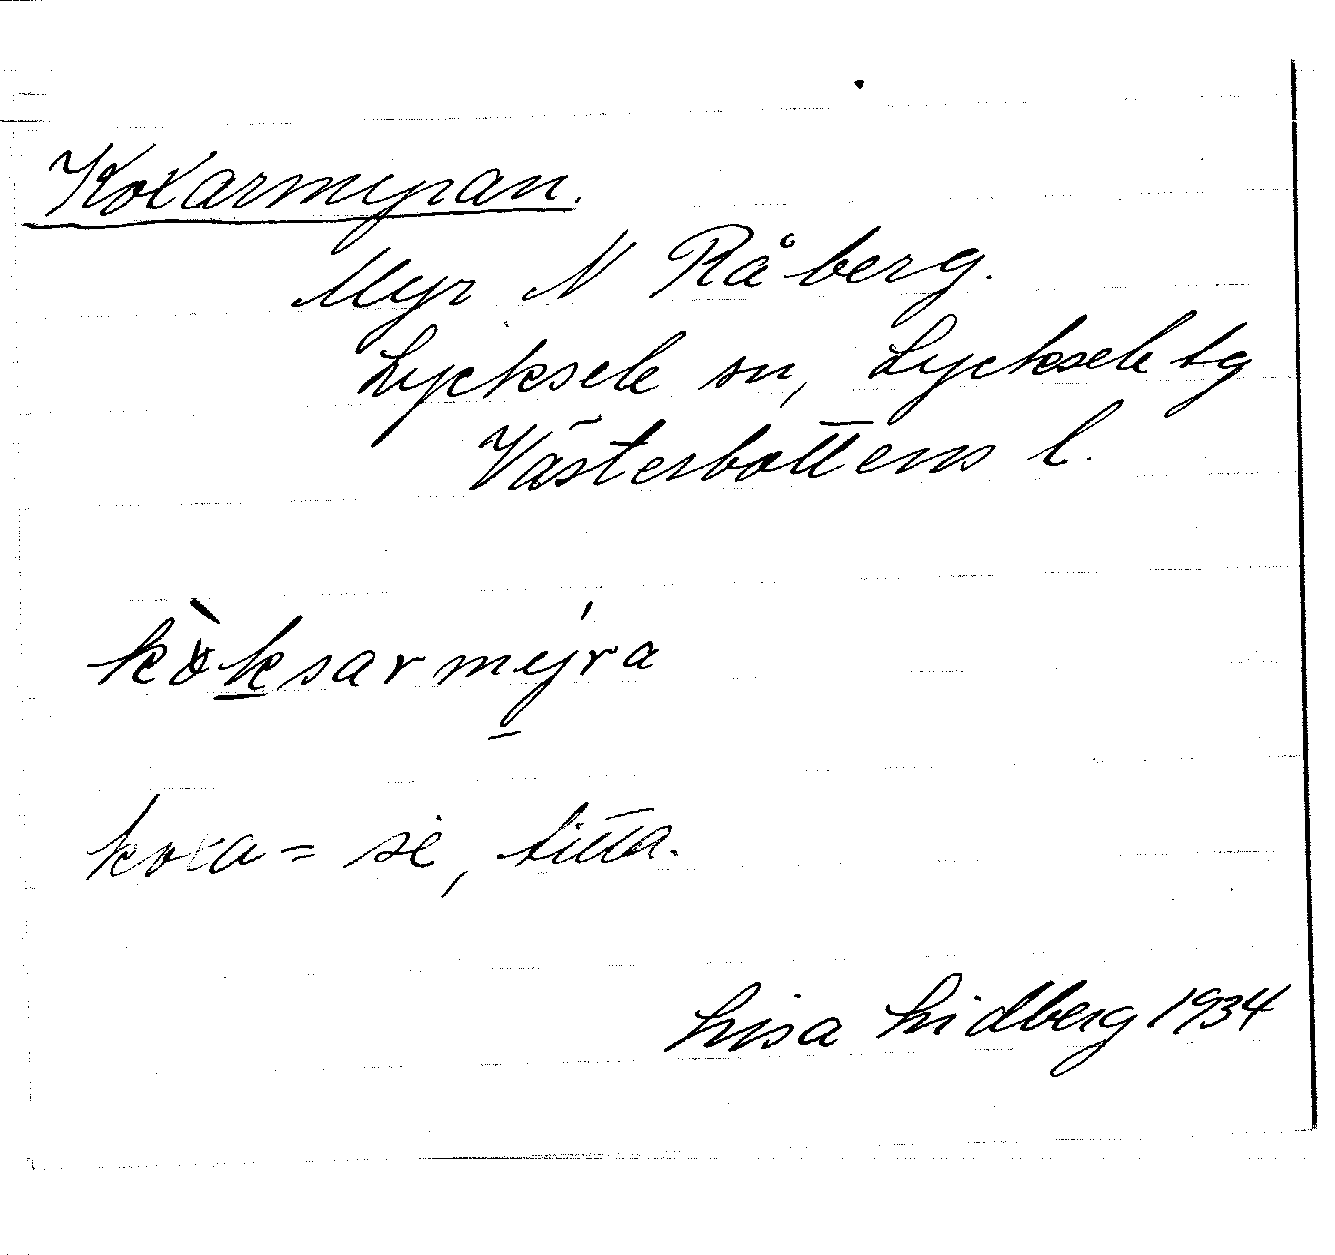 Koxarmyran.
Myr N Råberg.
Lycksele sn, Lycksele tg
Västerbottens l.
kòksarmýra
koxa = se, titta.
Lisa Lidberg 1934